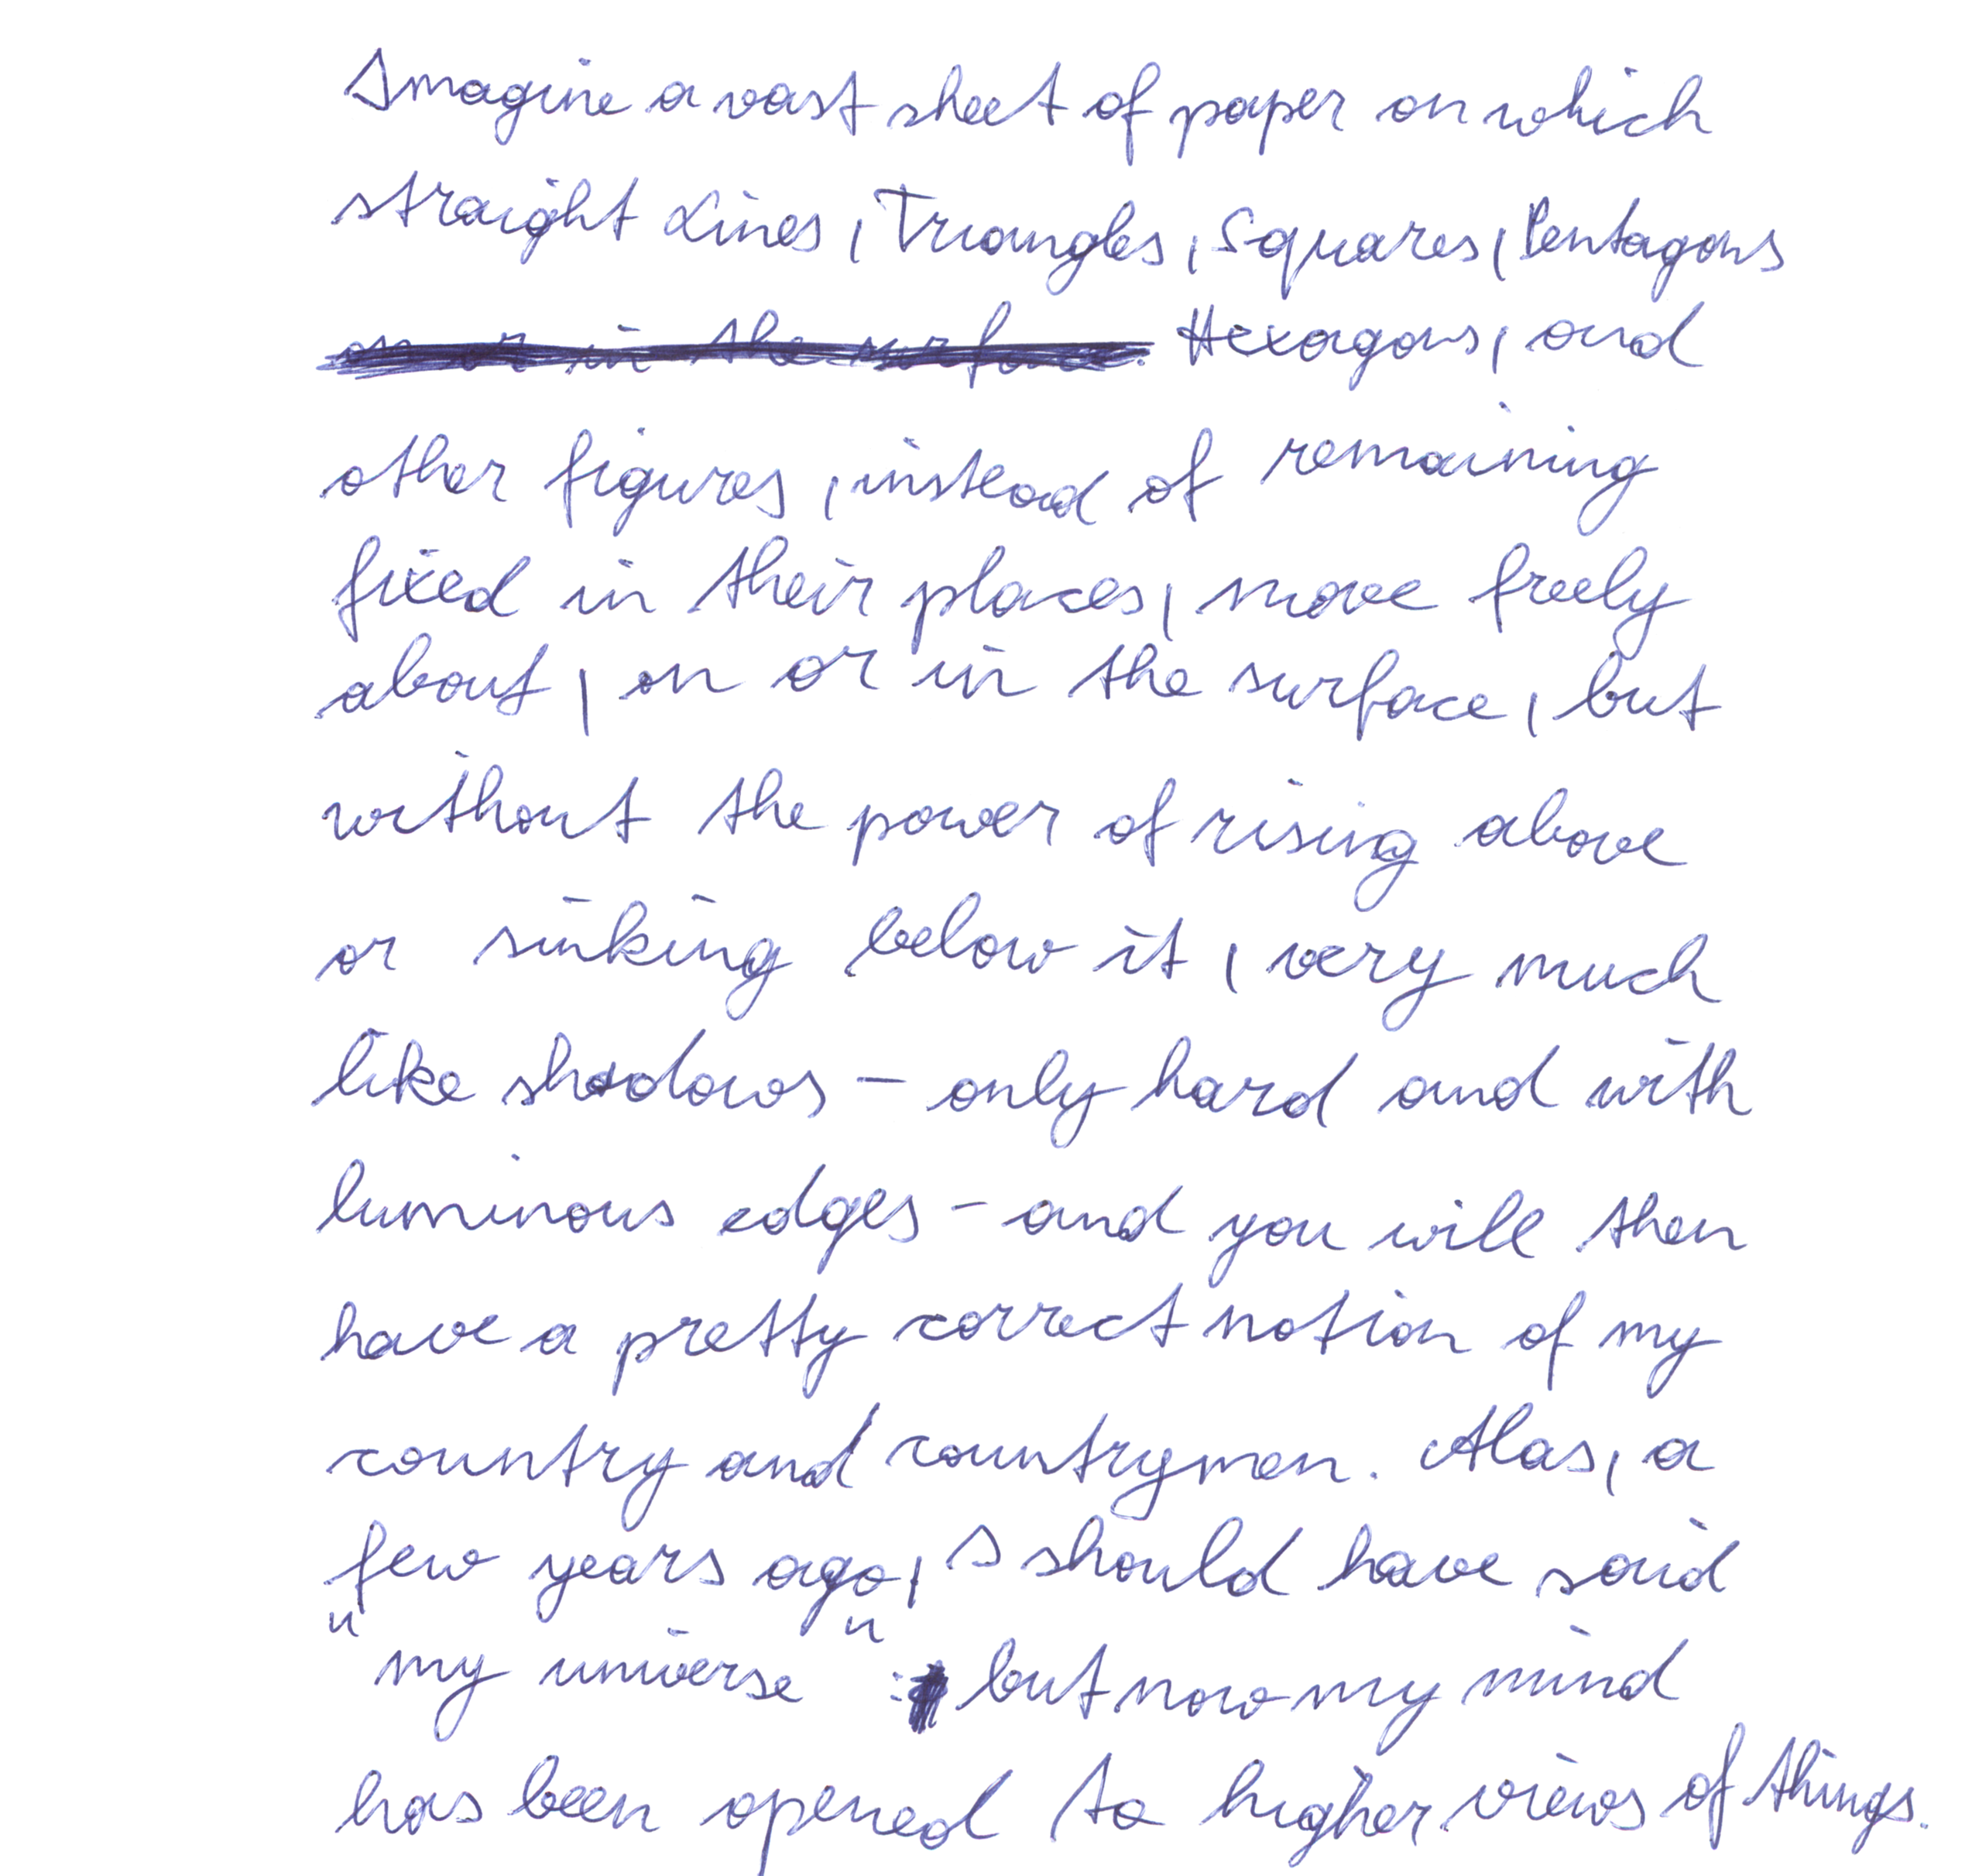 Imagine a vast sheet of paper on which
straight Lines, Triangles, Squares, Pentagons
on or in the surface. Hexagons, and
other figures, instead of remaining
fixed in their places, move freely
about, on or in the surface, but
without the power of rising above
or sinking below it, very much
like shadows - only hard and with
luminous edges - and you will then
have a pretty correct notion of my
country and countrymen. Alas, a
few years ago, I should have said
"my universe": but now my mind
has been opened to higher views of things.